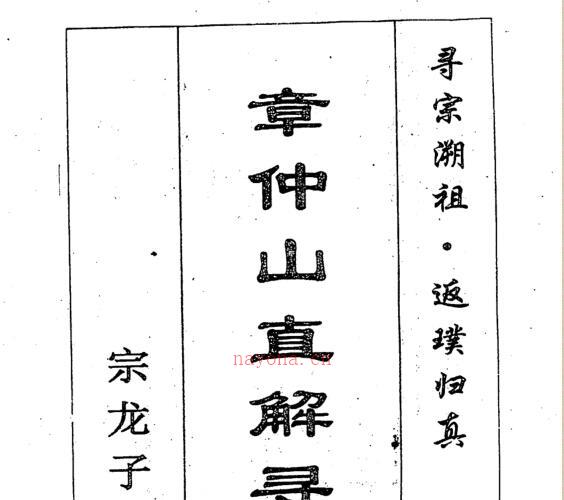 寻宗溯祖·返璞归真
章仲山直解寻
宗龙子
nayona.cn